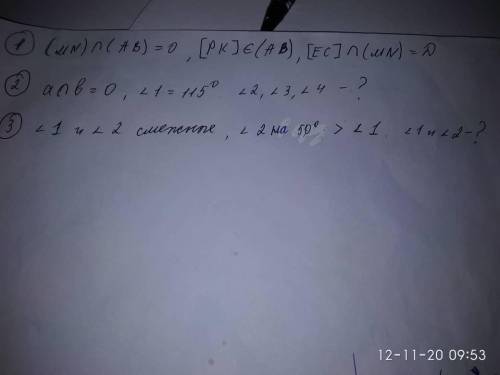 ① (MN)∩(AB)=O, [PK]∈(AB), [EC]∩(MN)=D
② a∩b=O, ∠1=115° ∠2, ∠3, ∠4 - ?
③ ∠1 и ∠2 смежные, ∠2 на 50° > ∠1. ∠1 и ∠2-?
12-11-20 09:53